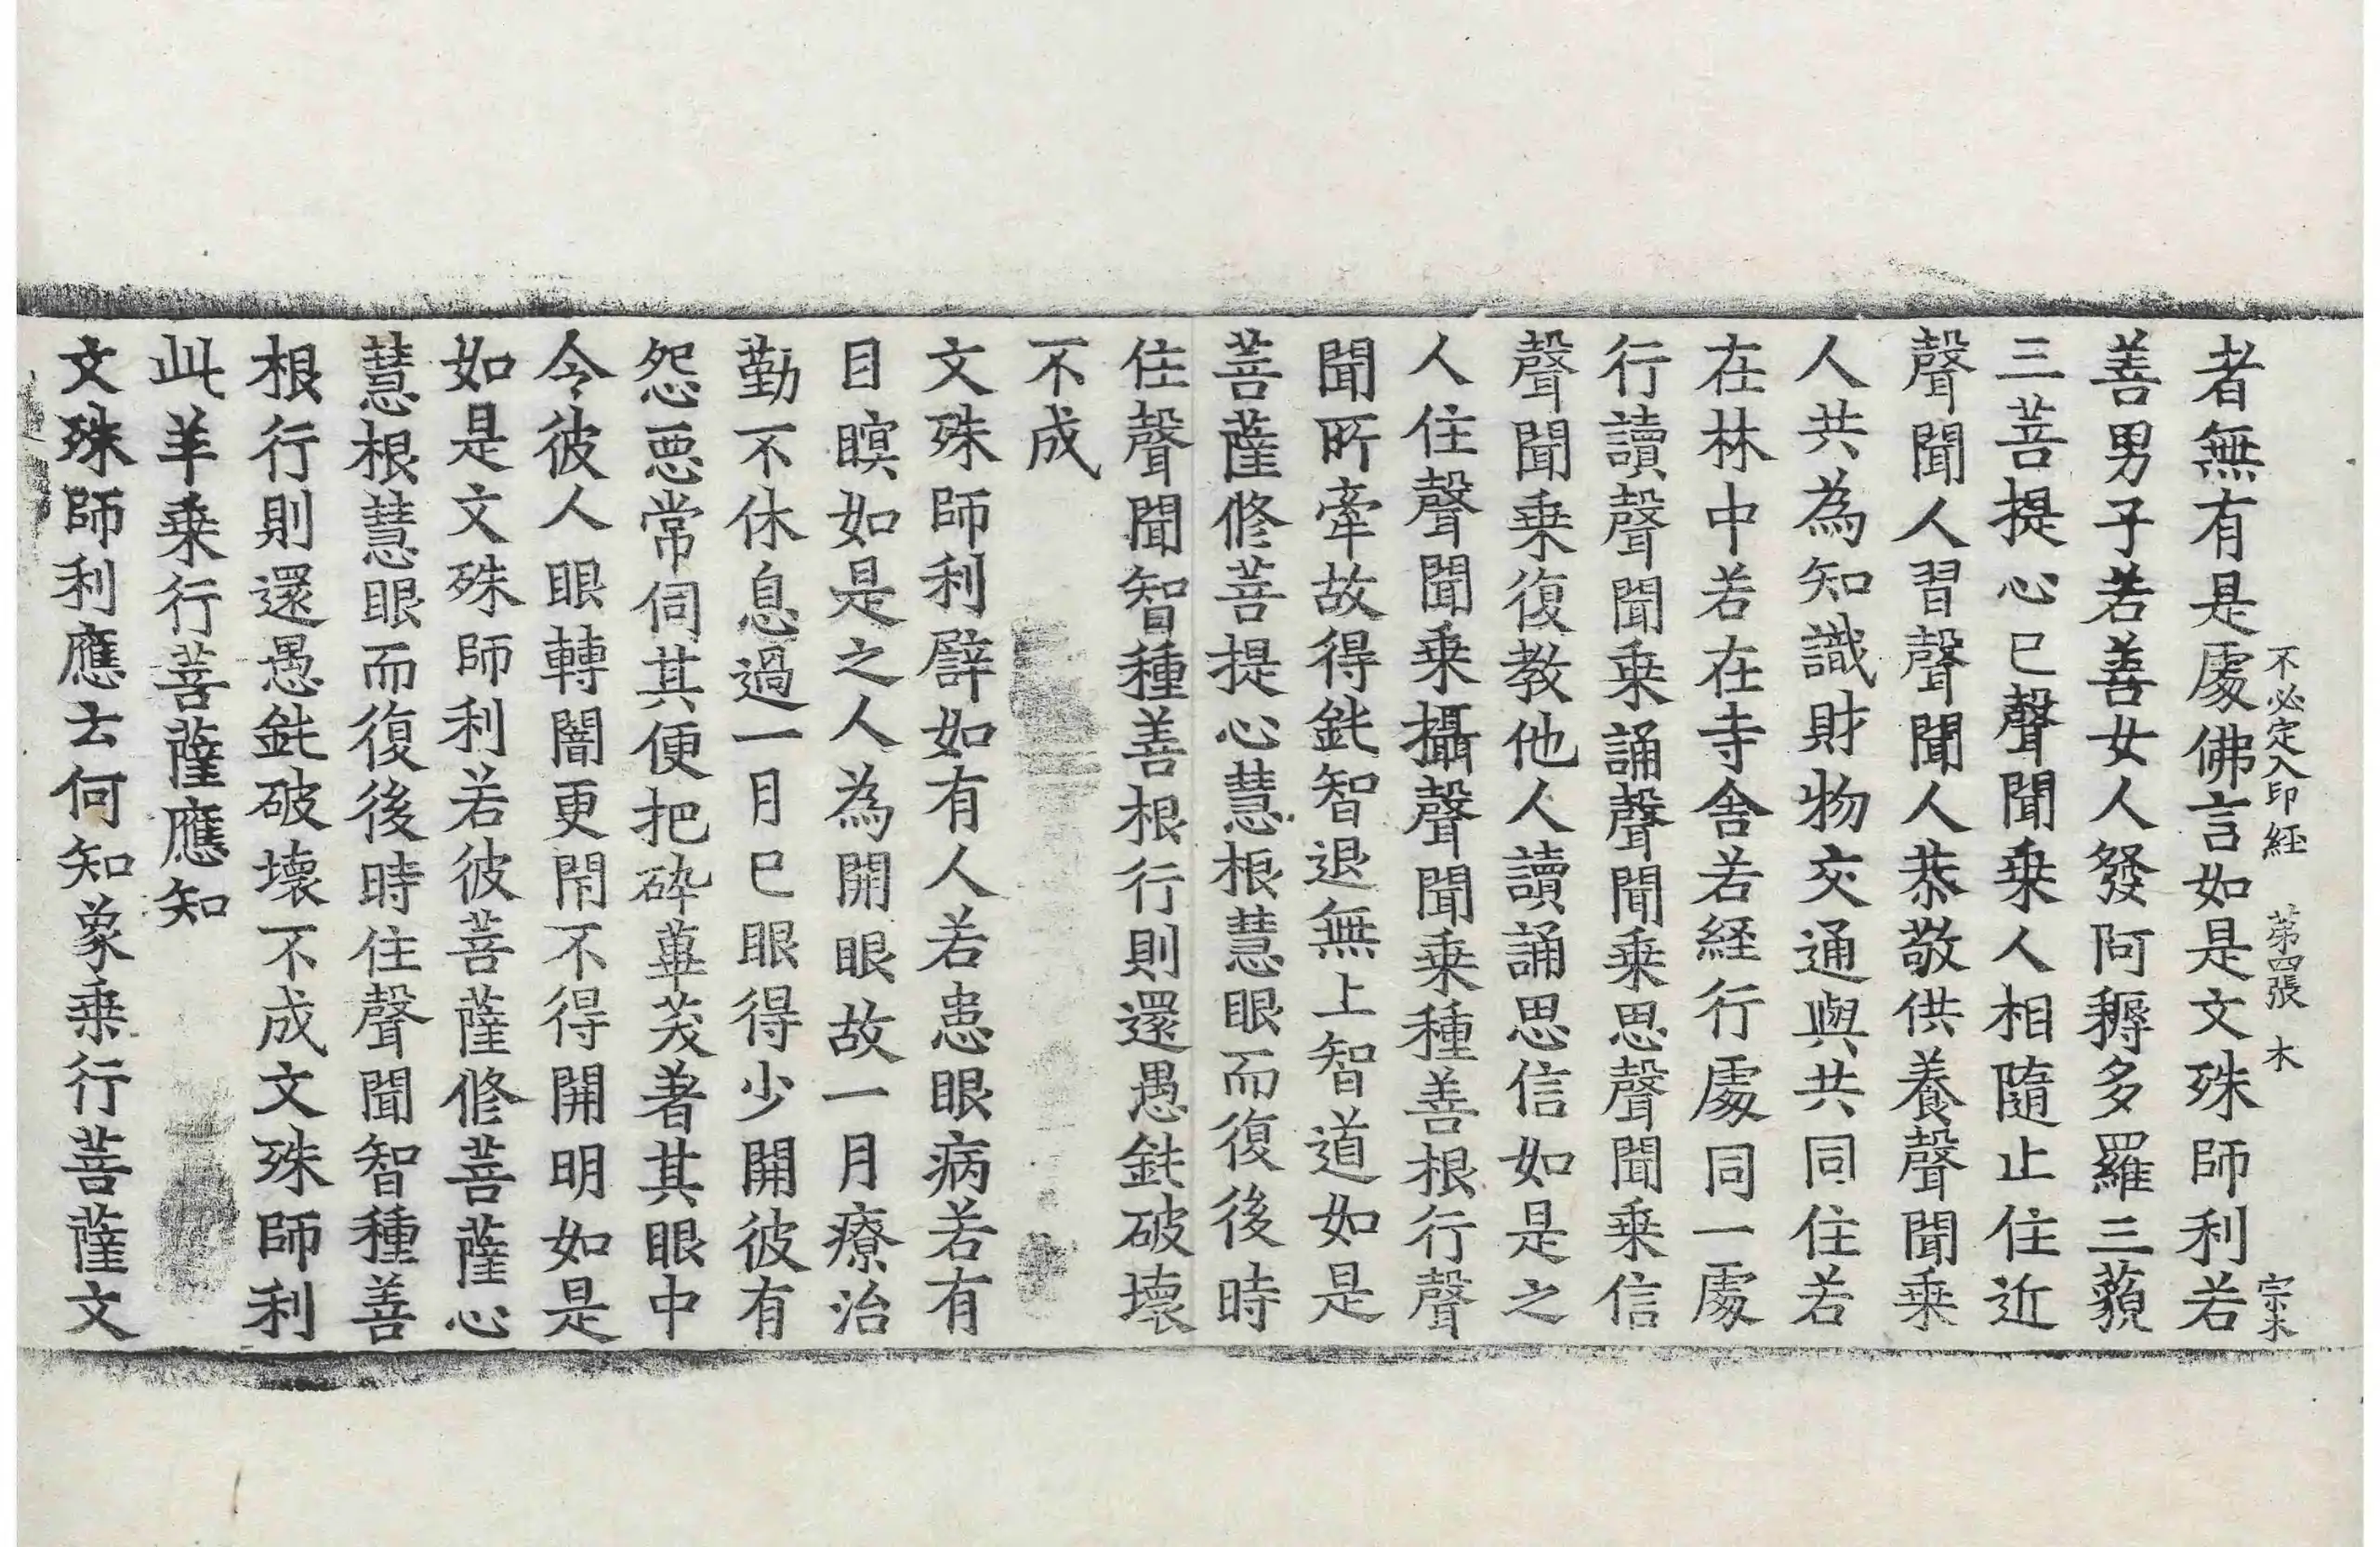 不必定入印経 第四張 木 宗木
者無有是處佛言如是文殊師利若
善男子若善女人發阿耨多羅三藐
三菩提心已聲聞乗人相隨止住近
聲聞人習聲聞人恭敬供養聲聞乗
人共為知識財物交通與共同住若
在林中若在寺舍若経行處同一處
行讀聲聞乗誦聲聞乗思聲聞乗信
聲聞乗復教他人讀誦思信如是之
人住聲聞乗攝聲聞乗種善根行聲
聞所牽故得鈍智退無上智道如是
菩薩修菩提心慧根慧眼而復後時
住聲聞智種善根行則還愚鈍破壞
不成
文殊師利辟如有人若患眼病若有
目瞑如是之人為開眼故一月療治
勤不休息過一月已眼得少開彼有
怨惡常伺其便把碎蓽茇著其眼中
令彼人眼轉闇更閇不得開明如是
如是文殊師利若彼菩薩修菩薩心
慧根慧眼而復後時住聲聞智種善
根行則還愚鈍破壞不成文殊師利
此羊乗行菩薩應知
文殊師利應云何知象乗行菩薩文